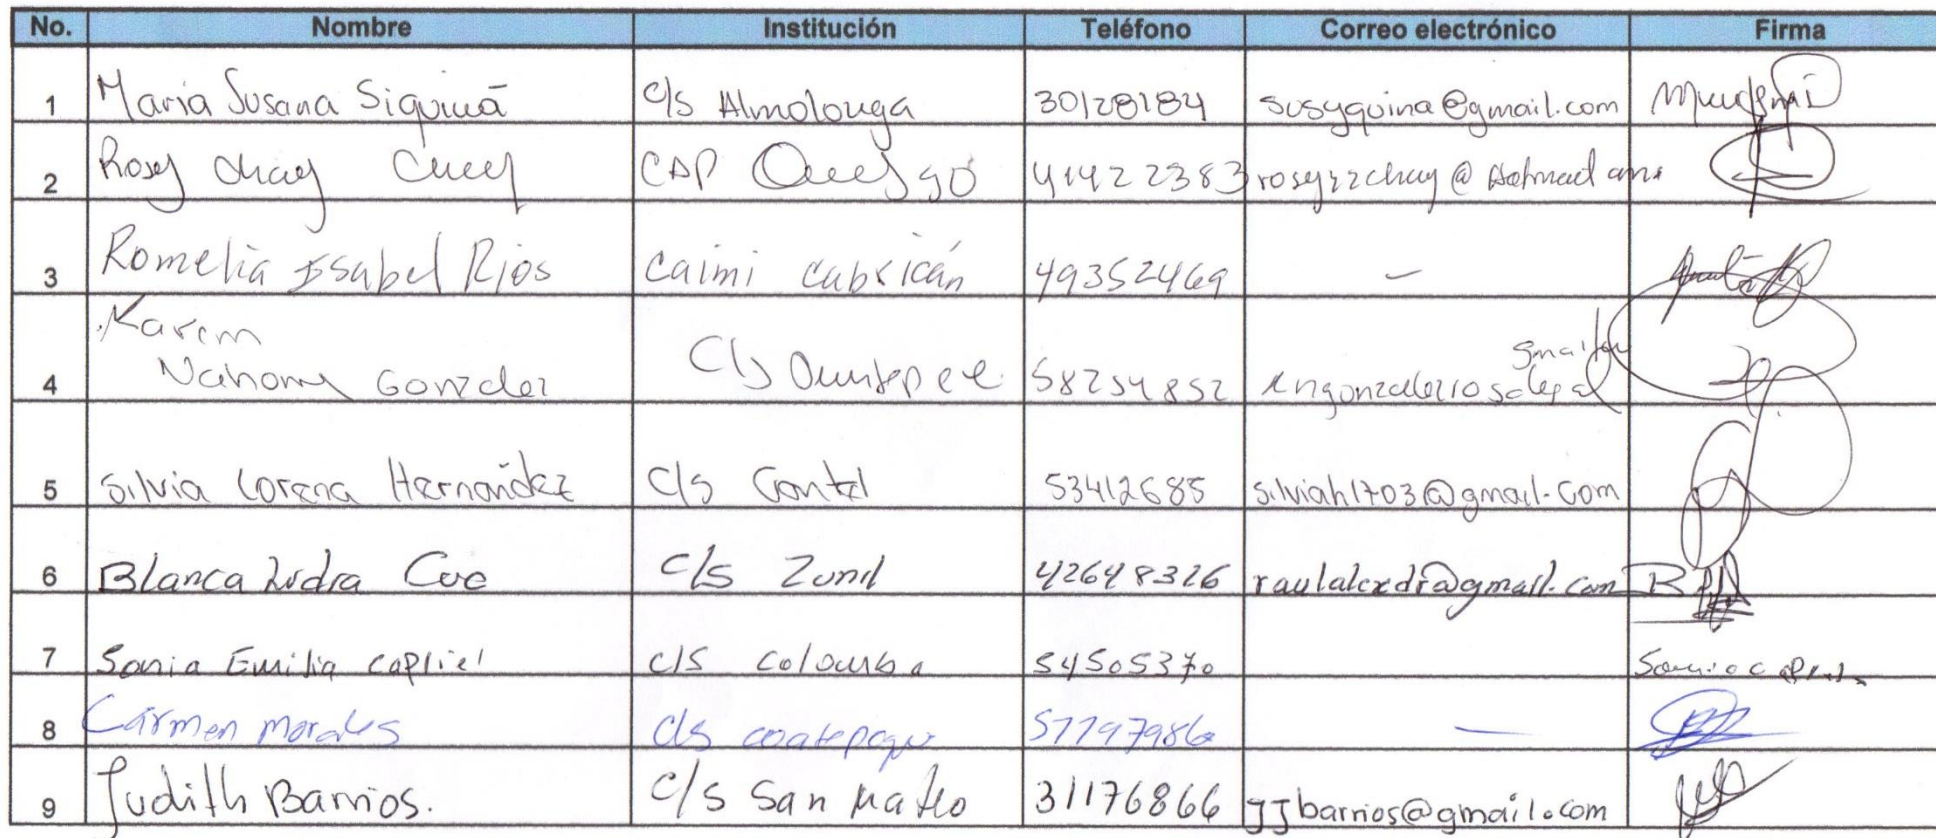 No. Nombre Institución Teléfono Correo electrónico Firma
1 Maria Susana Siquiná C/S Almolonga 30128184 susyquina@gmail.com
2 Rosy Chay CAP 41422383
3 Romelia Isabel Rios Caimi Cabricán 49352469 –
gmail
4 Karem Nahomy Gonzalez C/S 58254852
5 Silvia Lorena Hernández C/S Cantel 53412685 silviah1703@gmail.com
6 Blanca Lidra Coc C/S Zunil 42648326 raulalexdr@gmail.com
7 Sonia Emilia Capriel C/S Colomba 54505370
8 Carmen Morales C/S Coatepeque 57797986 –
9 Judith Barrios. C/S San Mateo 31176866 JJbarrios@gmail.com